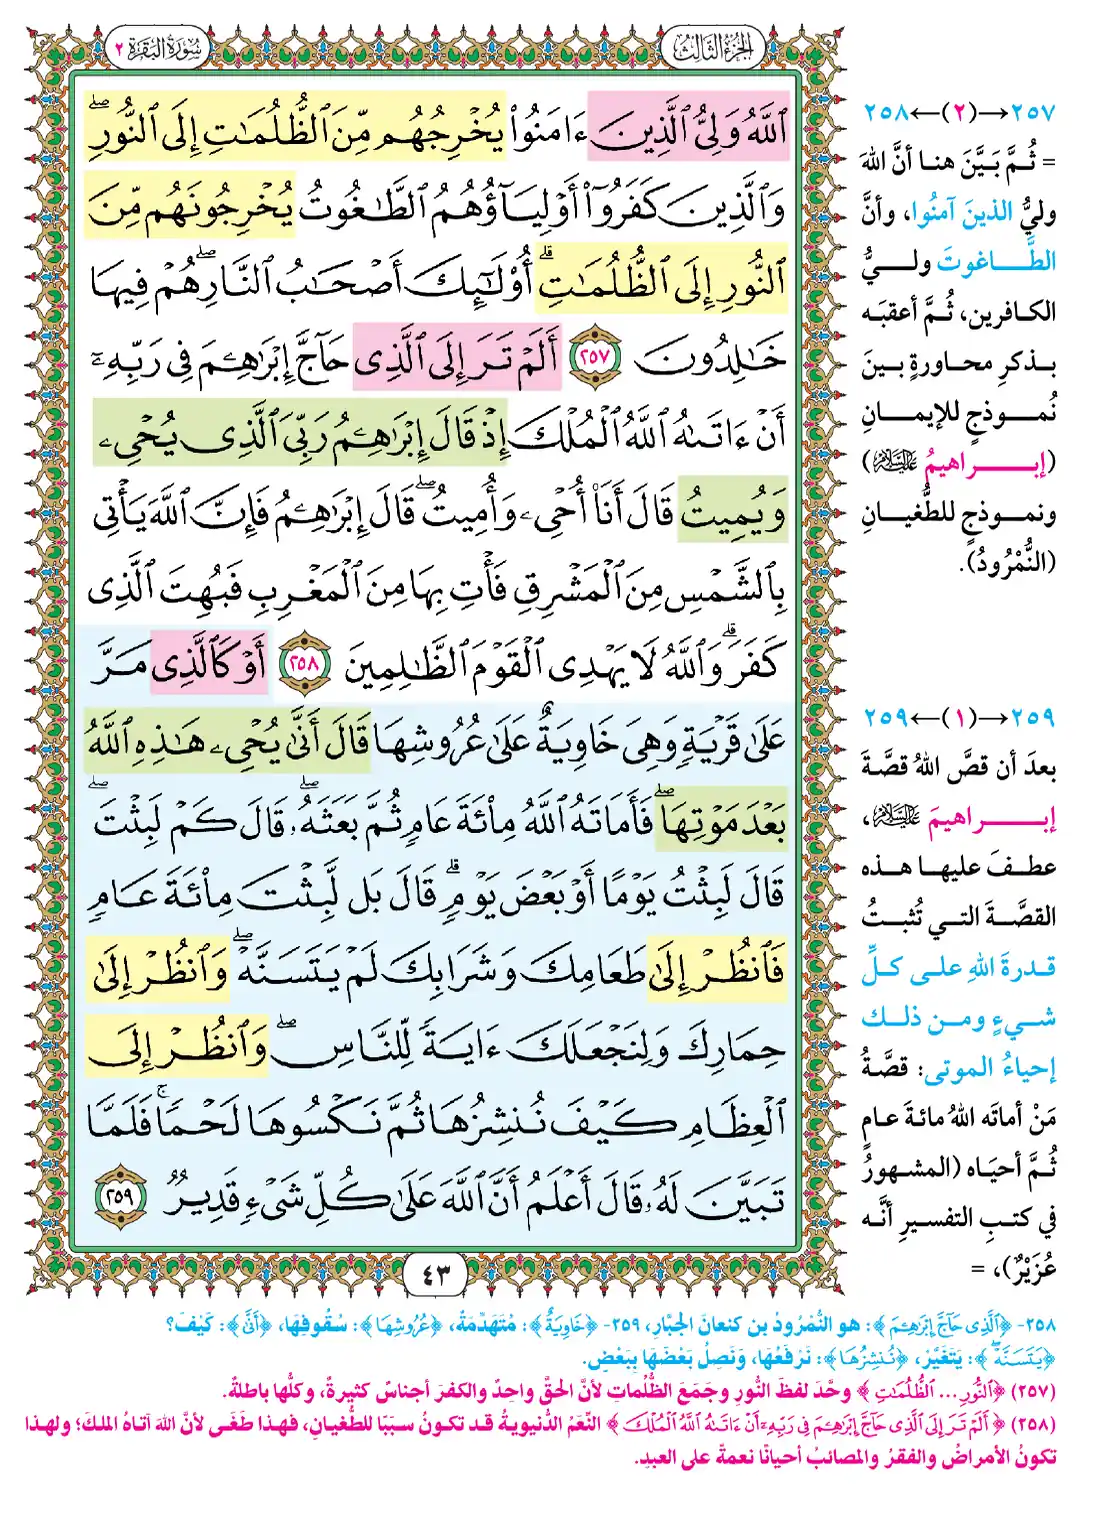 الجزء الثالث
سورة البقرة ٢
ٱللَّهُ وَلِيُّ ٱلَّذِينَ ءَامَنُوا۟ يُخْرِجُهُم مِّنَ ٱلظُّلُمَٰتِ إِلَى ٱلنُّورِ ۖ
وَٱلَّذِينَ كَفَرُوٓا۟ أَوْلِيَآؤُهُمُ ٱلطَّٰغُوتُ يُخْرِجُونَهُم مِّنَ
ٱلنُّورِ إِلَى ٱلظُّلُمَٰتِ ۗ أُو۟لَٰٓئِكَ أَصْحَٰبُ ٱلنَّارِ ۖ هُمْ فِيهَا
خَٰلِدُونَ ٢٥٧ أَلَمْ تَرَ إِلَى ٱلَّذِى حَآجَّ إِبْرَٰهِۦمَ فِى رَبِّهِۦٓ
أَنْ ءَاتَىٰهُ ٱللَّهُ ٱلْمُلْكَ إِذْ قَالَ إِبْرَٰهِۦمُ رَبِّىَ ٱلَّذِى يُحْىِۦ
وَيُمِيتُ قَالَ أَنَا۠ أُحْىِۦ وَأُمِيتُ ۖ قَالَ إِبْرَٰهِۦمُ فَإِنَّ ٱللَّهَ يَأْتِى
بِٱلشَّمْسِ مِنَ ٱلْمَشْرِقِ فَأْتِ بِهَا مِنَ ٱلْمَغْرِبِ فَبُهِتَ ٱلَّذِى
كَفَرَ ۗ وَٱللَّهُ لَا يَهْدِى ٱلْقَوْمَ ٱلظَّٰلِمِينَ ٢٥٨ أَوْ كَٱلَّذِى مَرَّ
عَلَىٰ قَرْيَةٍ وَهِىَ خَاوِيَةٌ عَلَىٰ عُرُوشِهَا قَالَ أَنَّىٰ يُحْىِۦ هَٰذِهِ ٱللَّهُ
بَعْدَ مَوْتِهَا ۖ فَأَمَاتَهُ ٱللَّهُ مِا۟ئَةَ عَامٍ ثُمَّ بَعَثَهُۥ ۖ قَالَ كَمْ لَبِثْتَ ۖ
قَالَ لَبِثْتُ يَوْمًا أَوْ بَعْضَ يَوْمٍ ۖ قَالَ بَل لَّبِثْتَ مِا۟ئَةَ عَامٍ
فَٱنظُرْ إِلَىٰ طَعَامِكَ وَشَرَابِكَ لَمْ يَتَسَنَّهْ ۖ وَٱنظُرْ إِلَىٰ
حِمَارِكَ وَلِنَجْعَلَكَ ءَايَةً لِّلنَّاسِ ۖ وَٱنظُرْ إِلَى
ٱلْعِظَامِ كَيْفَ نُنشِزُهَا ثُمَّ نَكْسُوهَا لَحْمًا ۚ فَلَمَّا
تَبَيَّنَ لَهُۥ قَالَ أَعْلَمُ أَنَّ ٱللَّهَ عَلَىٰ كُلِّ شَىْءٍ قَدِيرٌ ٢٥٩
٤٣
٢٥٧→(٢)←٢٥٨
= ثُمَّ بَيَّنَ هنا أنَّ اللهَ
وليُّ الذينَ آمنُوا، وأنَّ
الطَّاغوتَ وليُّ
الكافرين، ثُمَّ أعقبَه
بذكرِ محاورةٍ بينَ
نُموذجٍ للإيمانِ
(إبراهيمُ عليه السلام)
ونموذجٍ للطُّغيانِ
(النُّمْرُودُ).
٢٥٩→(١)←٢٥٩
بعدَ أن قصَّ اللهُ قصَّةَ
إبراهيمَ عليه السلام،
عطفَ عليها هذه
القصَّةَ التي تُثبتُ
قدرةَ اللهِ على كلِّ
شيءٍ ومن ذلك
إحياءُ الموتى: قصَّةُ
مَنْ أماتَه اللهُ مائةَ عامٍ
ثُمَّ أحيَاه (المشهورُ
في كتبِ التفسيرِ أنَّه
عُزَيْرٌ)، =
٢٥٨- ﴿ٱلَّذِى حَآجَّ إِبْرَٰهِۦمَ﴾: هو النُّمْرُودُ بن كنعانَ الجبَّار، ٢٥٩- ﴿خَاوِيَةٌ﴾: مُتَهَدِّمَةٌ، ﴿عُرُوشِهَا﴾: سُقُوفِهَا، ﴿أَنَّىٰ﴾: كَيْفَ؟
﴿يَتَسَنَّهْ ۖ﴾: يَتَغَيَّرْ، ﴿نُنشِزُهَا﴾: نَرْفَعُهَا، وَنَصِلُ بَعْضَهَا بِبَعْضٍ.
(٢٥٧) ﴿ٱلنُّورِ ... ٱلظُّلُمَٰتِ﴾ وحَّدَ لفظَ النُّورِ وجَمَعَ الظُّلُماتِ لأنَّ الحقَّ واحدٌ والكفرَ أجناسٌ كثيرةٌ، وكلُّها باطلةٌ.
(٢٥٨) ﴿أَلَمْ تَرَ إِلَى ٱلَّذِى حَآجَّ إِبْرَٰهِۦمَ فِى رَبِّهِۦٓ أَنْ ءَاتَىٰهُ ٱللَّهُ ٱلْمُلْكَ﴾ النِّعَمُ الدُّنيويةُ قد تكونُ سببًا للطُّغيانِ، فهذا طَغَى لأنَّ اللهَ آتاهُ الملكَ؛ ولهذا
تكونُ الأمراضُ والفقرُ والمصائبُ أحيانًا نعمةً على العبدِ.